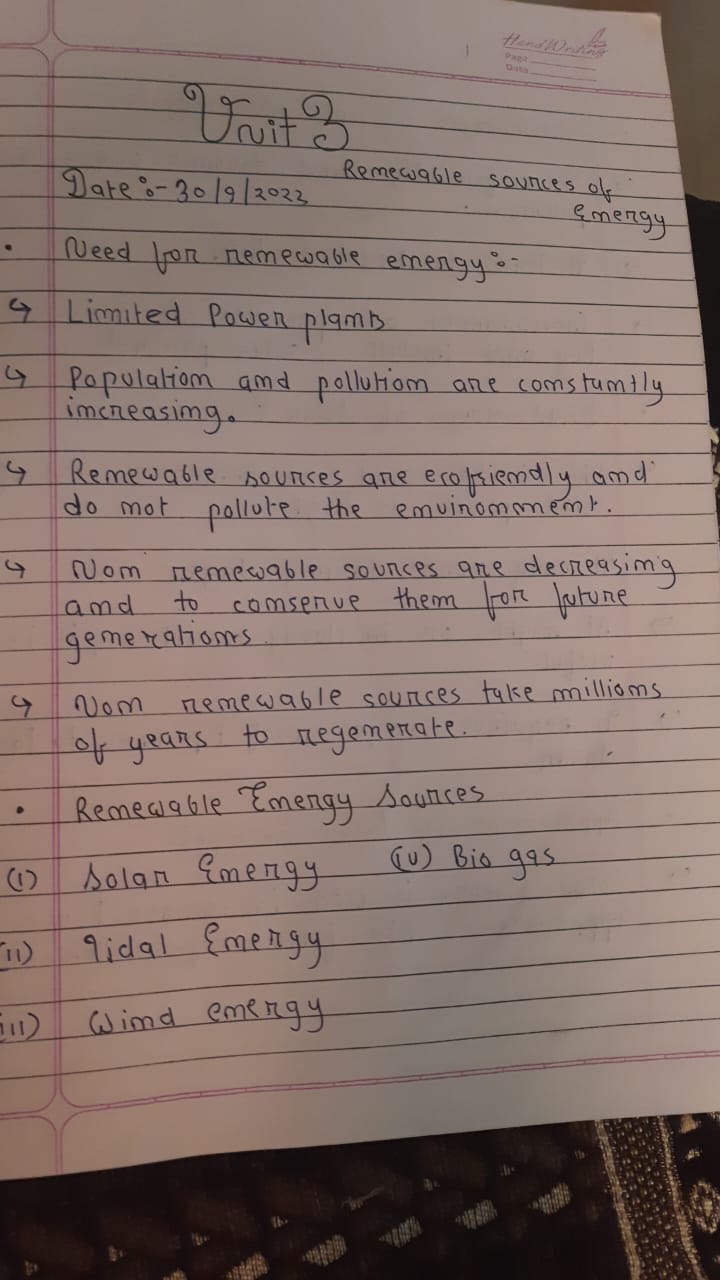 HandWriting
Page
Date
Unit 3
Renewable sources of
Date :- 30/9/2023
Energy
• Need for renewable energy :-
↪ Limited Power plants
↪ Population and pollution are constantly
increasing.
↪ Renewable sources are ecofriendly and
do not pollute the environment.
↪ Non renewable sources are decreasing
and to conserve them for future
generations
↪ Non renewable sources take millions
of years to regenerate.
• Renewable Energy Sources
(i) Solar Energy (iv) Bio gas
(ii) Tidal Energy
(iii) Wind energy